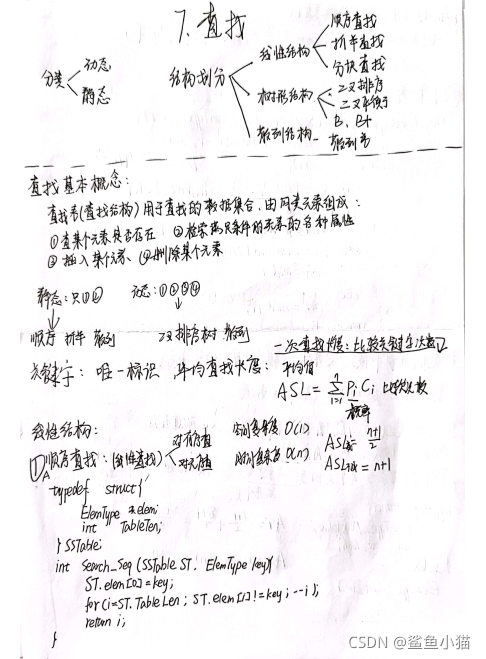 7. 查找
分类 动态 静态
结构划分 线性结构 顺序查找 折半查找 分块查找
树形结构 二叉排序 二叉平衡 B、B+
散列结构 散列表
查找基本概念:
查找表(查找结构) 用于查找的数据集合,由同类元素组成:
①查某个元素是否存在 ②检索满足条件的元素的各种属性
③插入某个元素、④删除某个元素
静态:只①② 动态:①②③④
顺序 折半 散列 二叉排序树 散列
一次查找长度:比较关键字次数
关键字:唯一标识 平均查找长度:平均值
ASL = Σ Pi Ci 比较次数
i=1 n 概率
线性结构:
①顺序查找:(线性查找)
空间复杂度 O(1) ASL成= n+1/2
时间复杂度 O(n) ASL败=n+1
typedef struct{
ElemType *elem;
int TableLen;
} SSTable;
int Search_Seq (SSTable ST, ElemType key){
ST.elem[0]=key;
for(i=ST.TableLen; ST.elem[i]!=key; --i);
return i;
}
CSDN @鲨鱼小猫